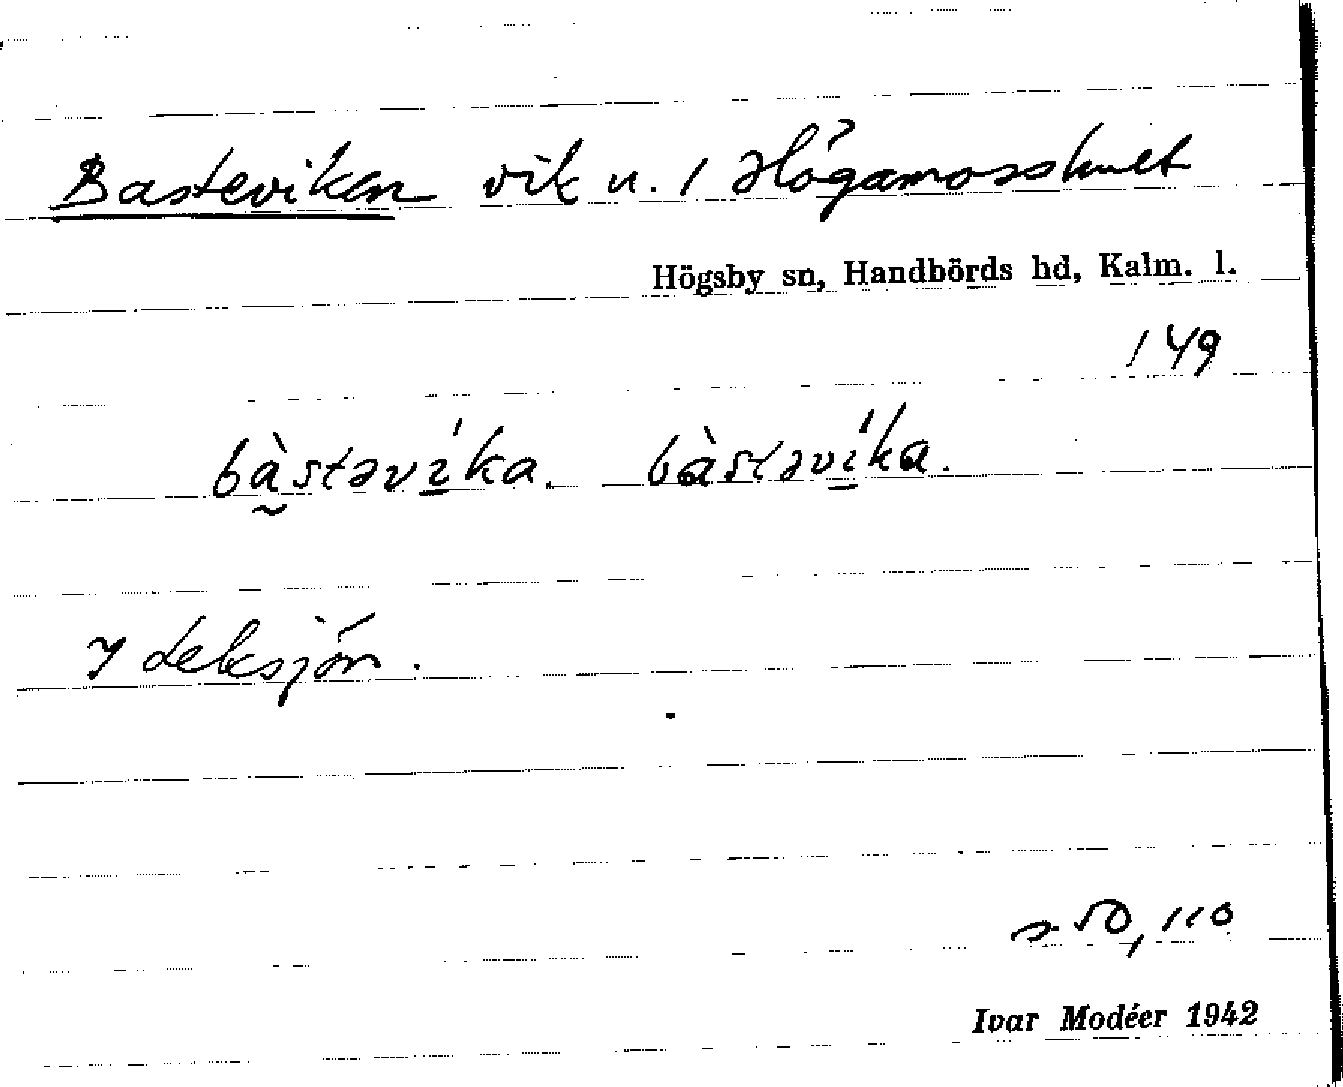 Basteviken vik u. / Högamosshult
Högsby sn, Handbörds hd, Kalm. l.
149
bàstəvíka. bàstəvíka.
I Leksjön.
50, 110
Ivar Modéer 1942